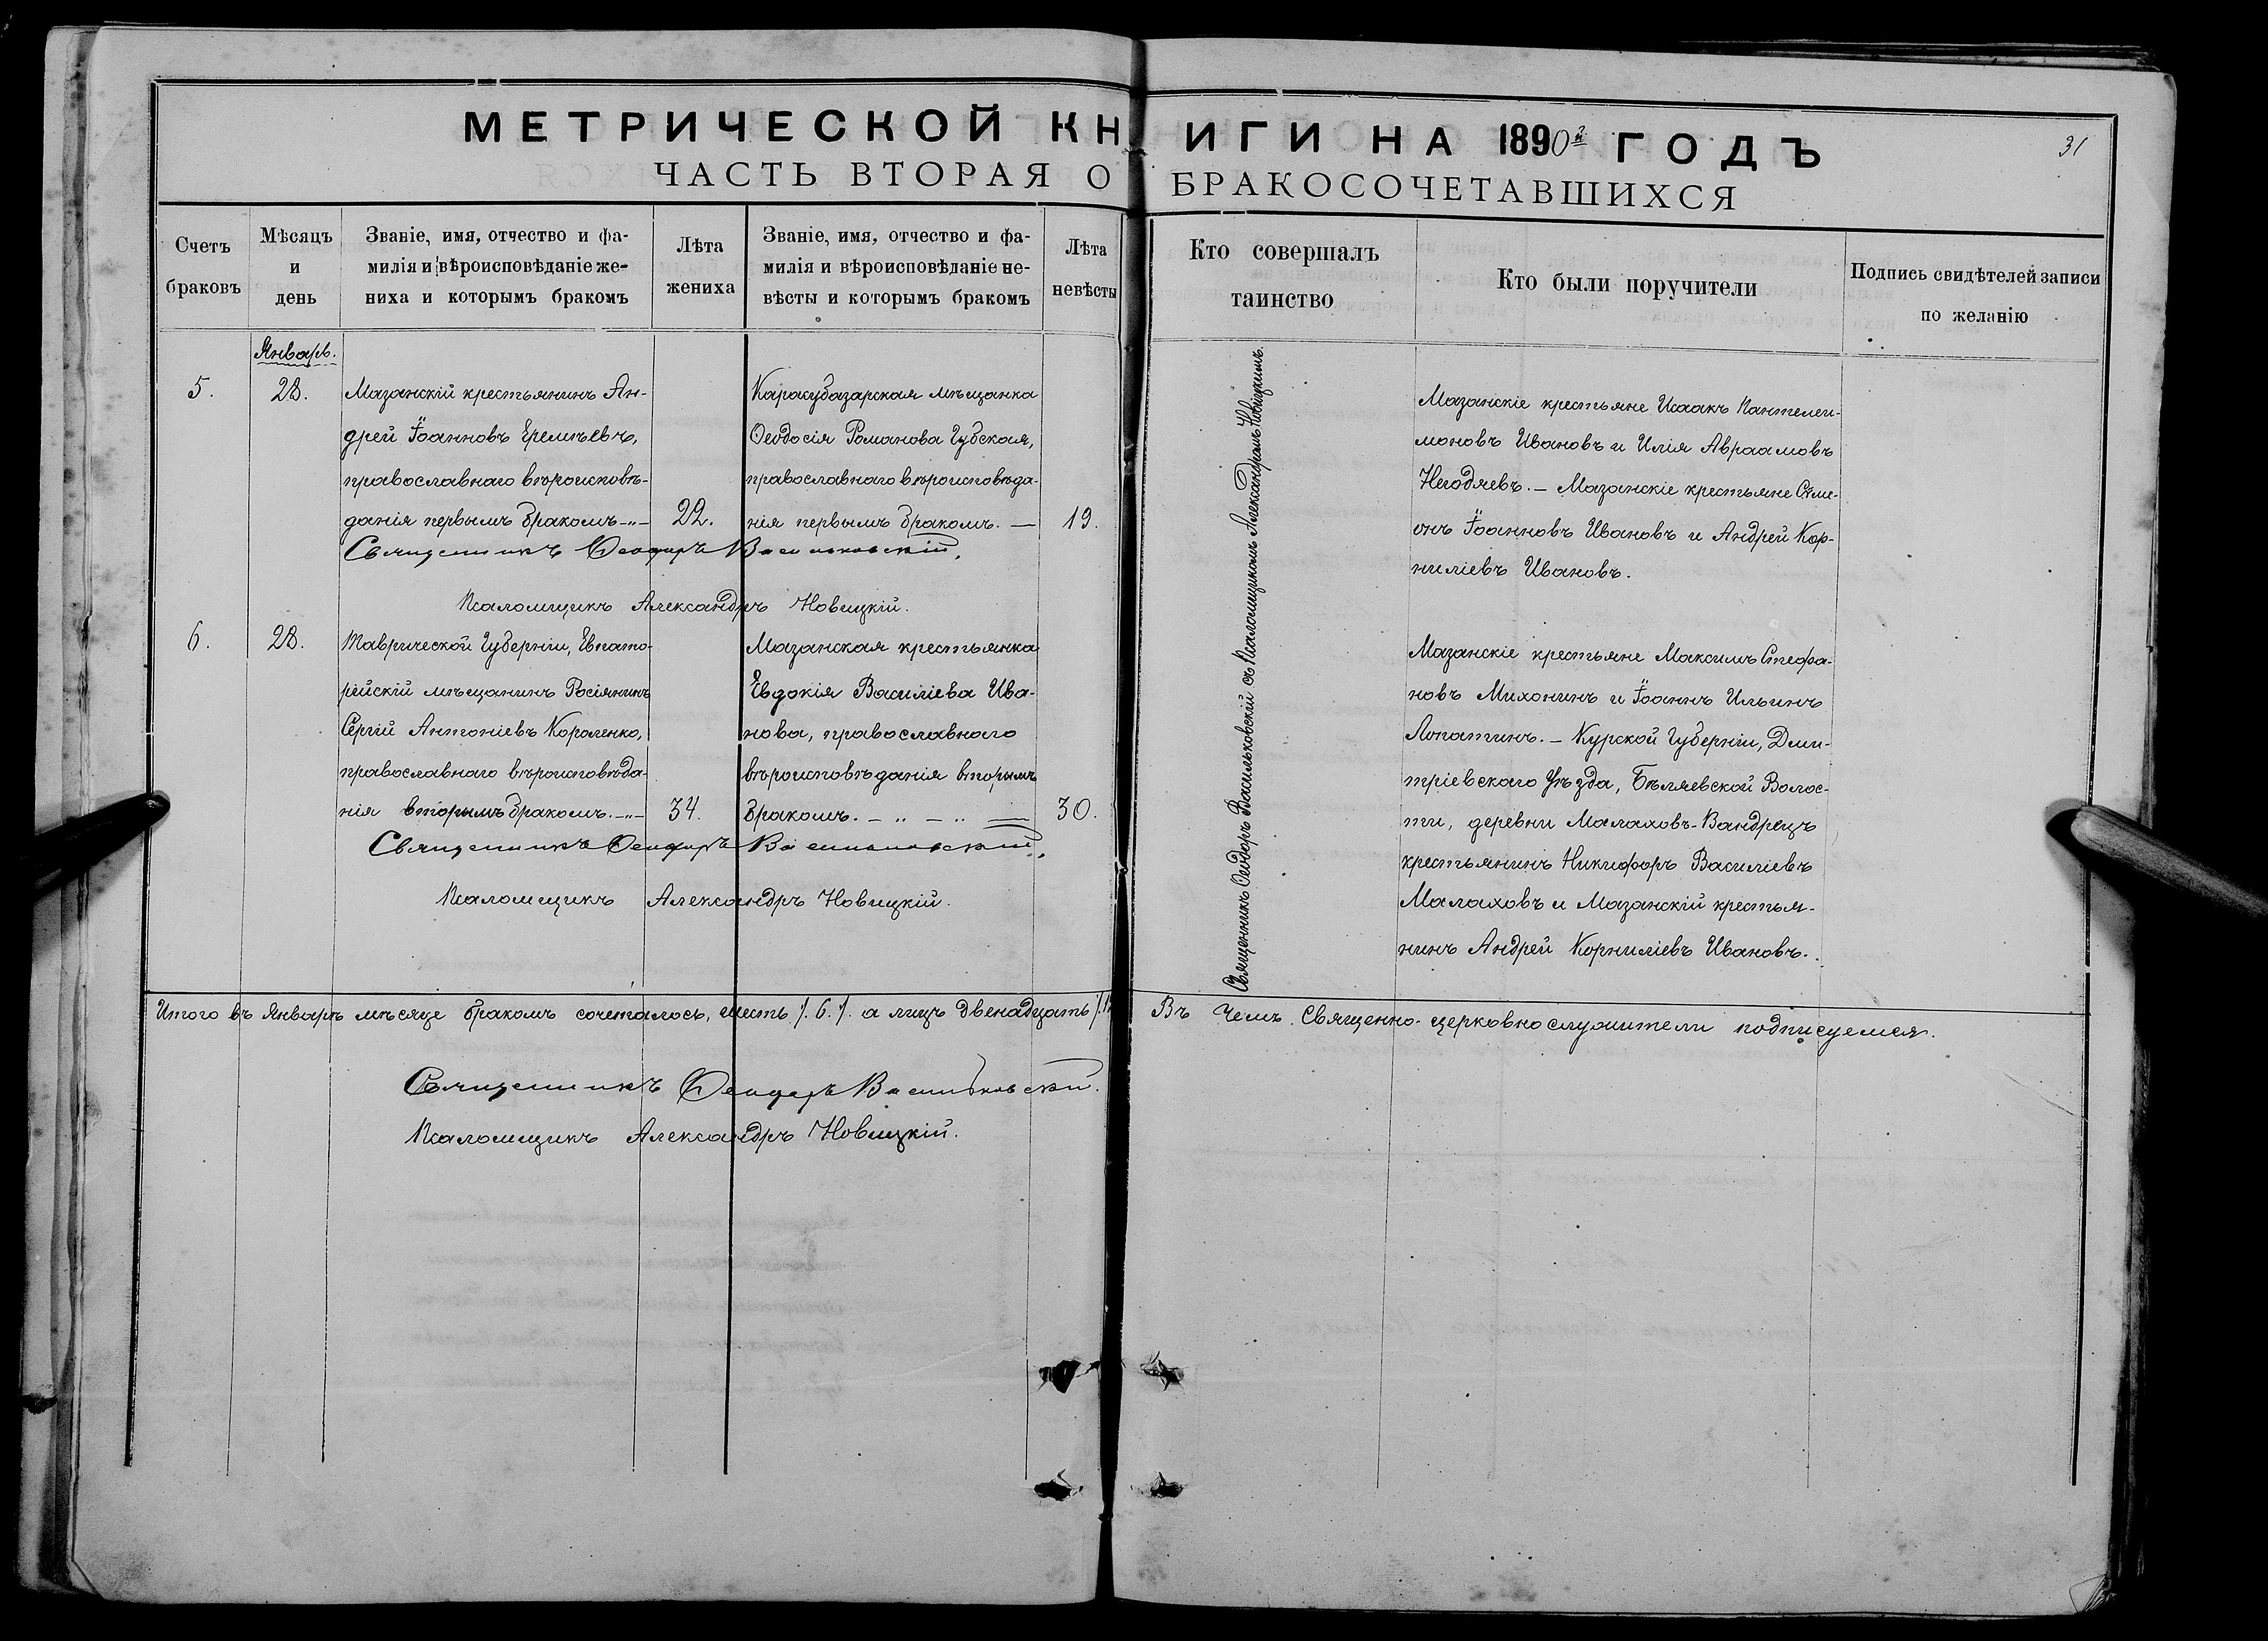 МЕТРИЧЕСКОЙ КНИГИ НА 1890й ГОДЪ
31
ЧАСТЬ ВТОРАЯ О БРАКОСОЧЕТАВШИХСЯ
Счетъ
браковъ
Мѣсяцъ
и
день
Званіе, имя, отчество и фа-
милія и вѣроисповѣданіе же-
ниха и которымъ бракомъ
Лѣта
жениха
Званіе, имя, отчество и фа-
милія и вѣроисповѣданіе не-
вѣсты и которымъ бракомъ
Лѣта
невѣсты
Кто совершалъ
таинство
Кто были поручители
Подпись свидѣтелей записи
по желанію
Январь.
5.
28.
Мазанскій крестьянинъ Ан-
дрей Іоанновъ Еремѣевъ,
православнаго вѣроисповѣ-
данія первымъ бракомъ -„-
22.
Карасубазарская мѣщанка
Ѳеодосія Романова Губская,
православнаго вѣроисповѣда-
нія первымъ бракомъ. —
19.
Священникъ Ѳеодоръ Васильковскій.
Псаломщикъ Александръ Новицкій.
Священникъ Ѳеодоръ Васильковскій съ Псаломщикомъ Александромъ Новицкимъ.
Мазанскіе крестьяне Исаакъ Пантелеи-
моновъ Ивановъ и Илія Авраамовъ
Негодяевъ. — Мазанскіе крестьяне Симе-
онъ Іоанновъ Ивановъ и Андрей Кор-
ниліевъ Ивановъ.
6.
28.
Таврической Губерніи, Евпато-
рійскій мѣщанинъ Росіянинъ
Сергій Антоніевъ Короленко,
православнаго вѣроисповѣда-
нія вторымъ бракомъ. -„-
34.
Мазанская крестьянка
Евдокія Василіева Ива-
нова, православнаго
вѣроисповѣданія вторымъ
бракомъ. — „ — „ —
30.
Священникъ Ѳеодоръ Васильковскій.
Псаломщикъ Александръ Новицкій.
Мазанскіе крестьяне Максимъ Стефа-
новъ Михонинъ и Іоаннъ Ильинъ
Лопатинъ. — Курской Губерніи, Дми-
тріевскаго Уѣзда, Бѣляевской Волос-
ти, деревни Малаховъ-Вандрецъ
крестьянинъ Никифоръ Василіевъ
Малаховъ и Мазанскій крестья-
нинъ Андрей Корниліевъ Ивановъ.
Итого въ Январѣ мѣсяце бракомъ сочеталось, шесть /.6./. а лицъ двенадцать /.12
Въ Чемъ. Священно-церковнослужители подписуемся.
Священникъ Ѳеодоръ Васильковскій.
Псаломщикъ Александръ Новицкій.